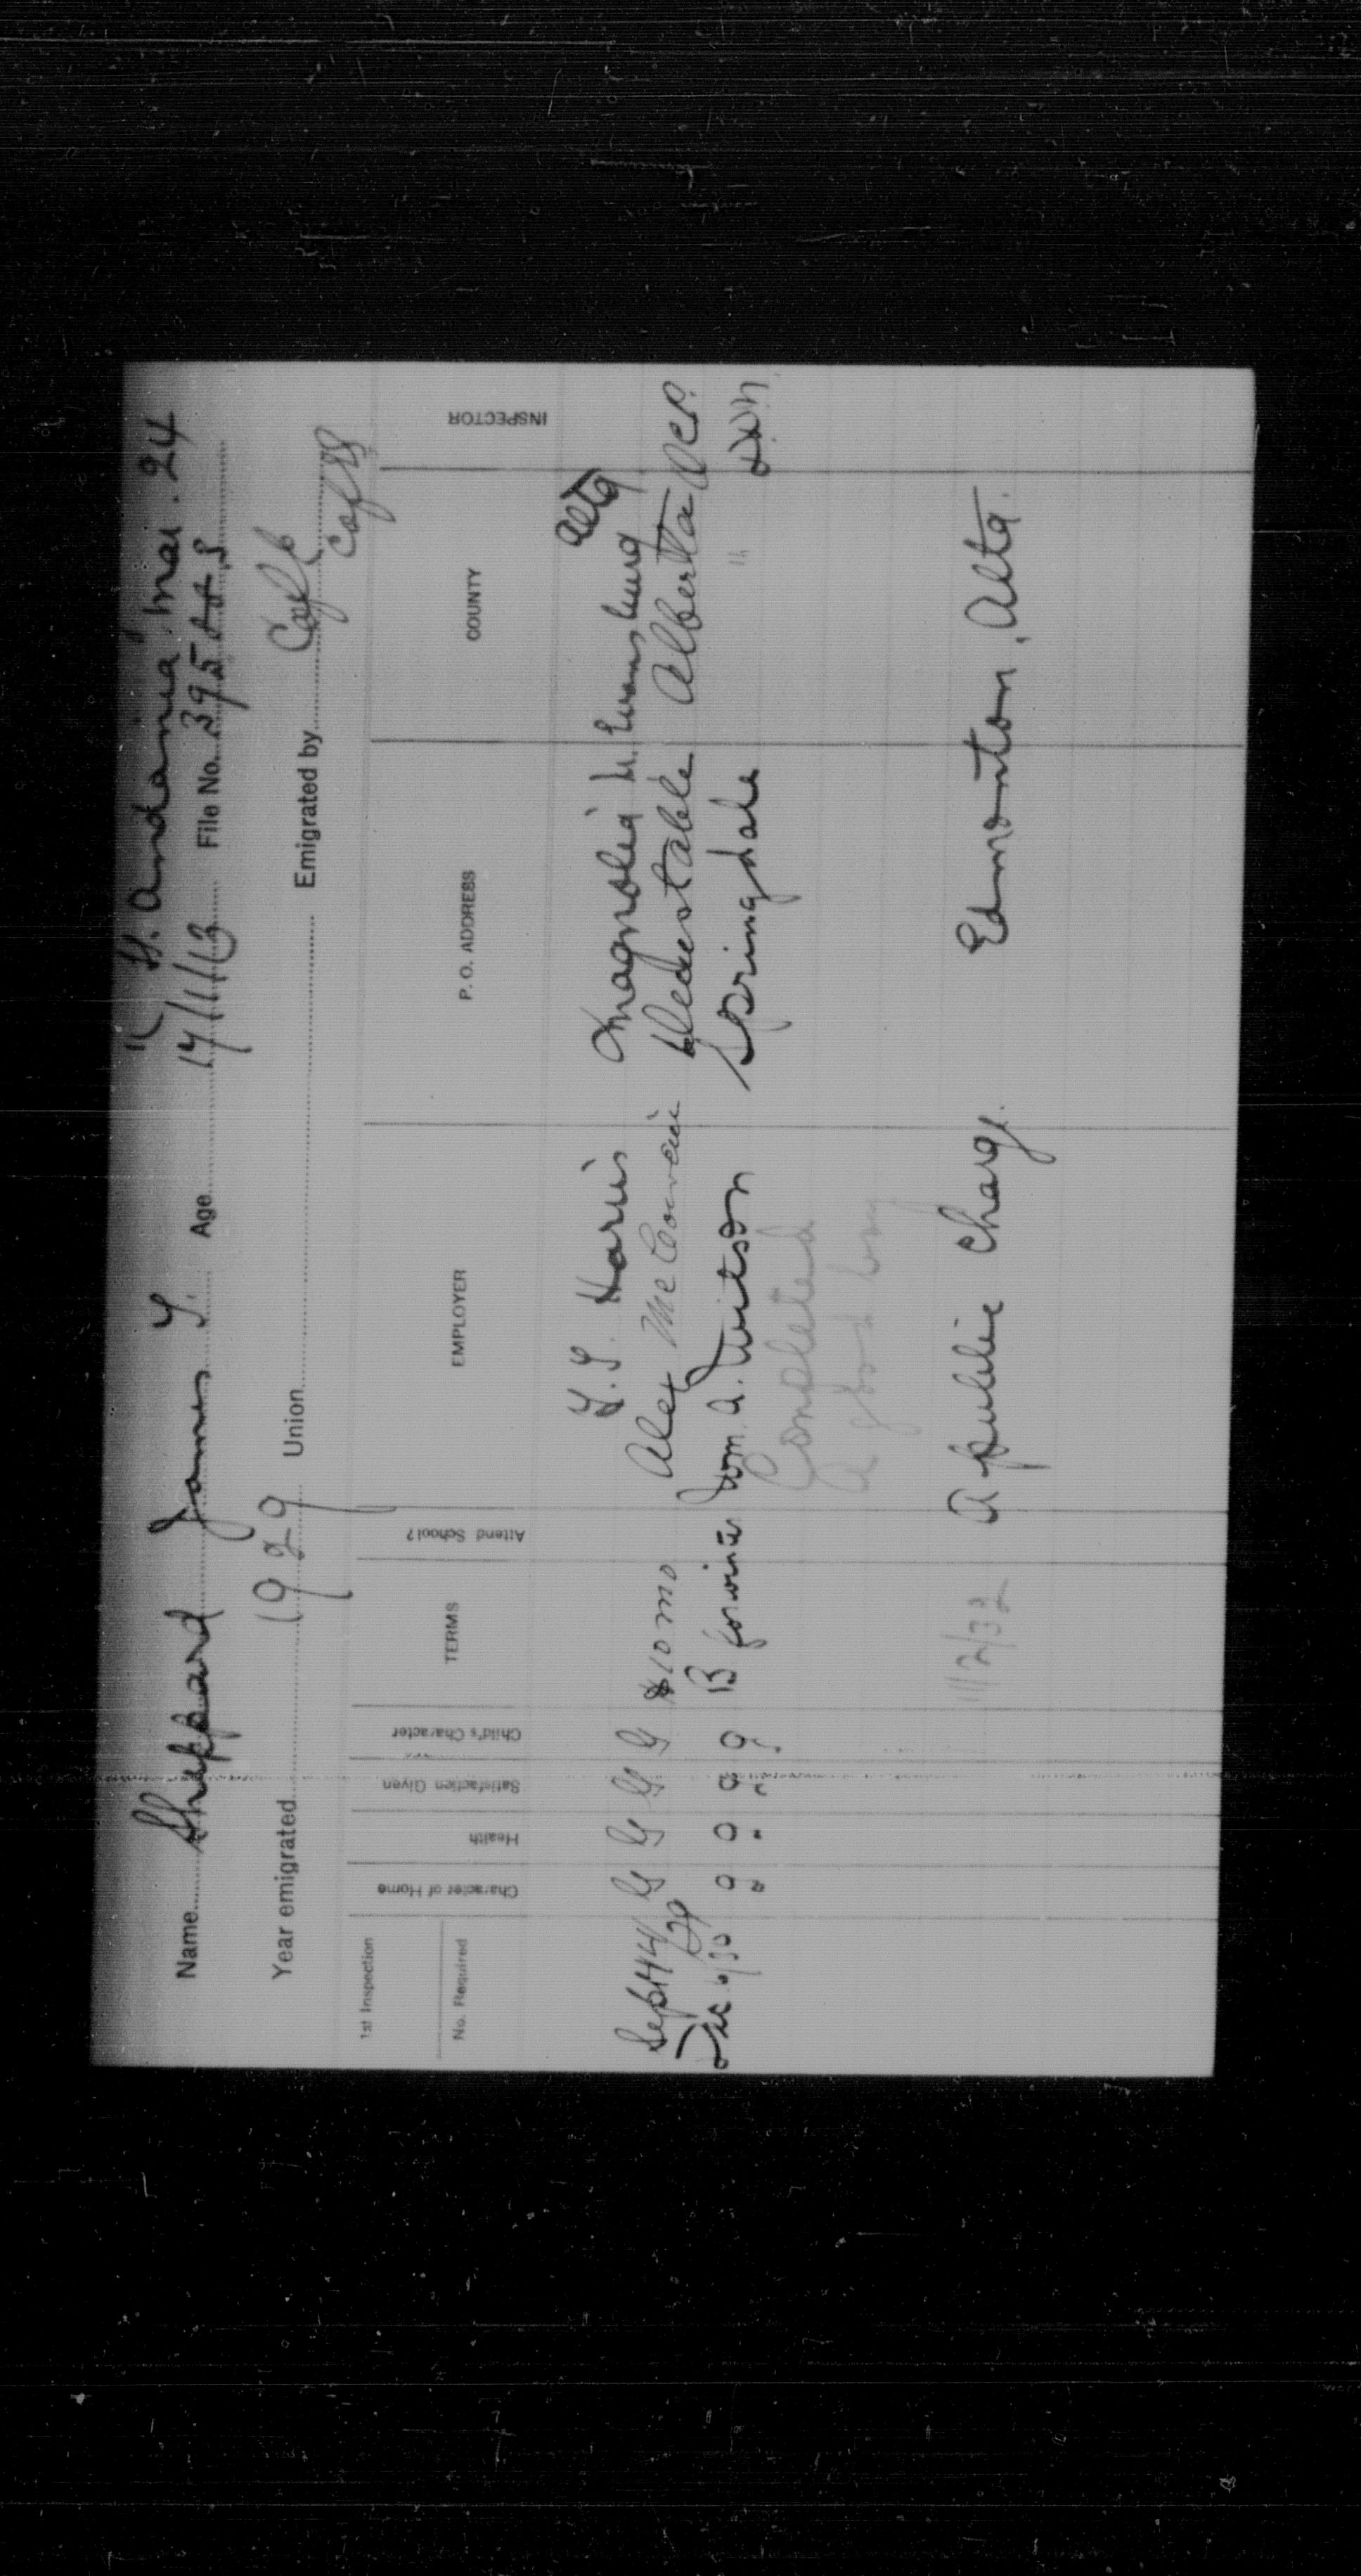 " St. Andania. Mar. 24
Name Sheppard James T. Age 17/1/13 File No. 395
Year emigrated 1929 Union Emigrated by C of E
C of E
1st Inspection
No. Required Character of Home Health Satisfaction Given Child's Character TERMS Attend School? EMPLOYER P. O. ADDRESS COUNTY INSPECTOR
T. S. Harris Magnolia Evansburg Alta
Sept 14/29 G G G G $10 mo Alex Bluestable Alberta
Dec 6/30 g g g g B for winter Wm. A. Tuitson Springdale "
Completed
A good boy
11/2/32 A public charge. Edmonton, Alta.